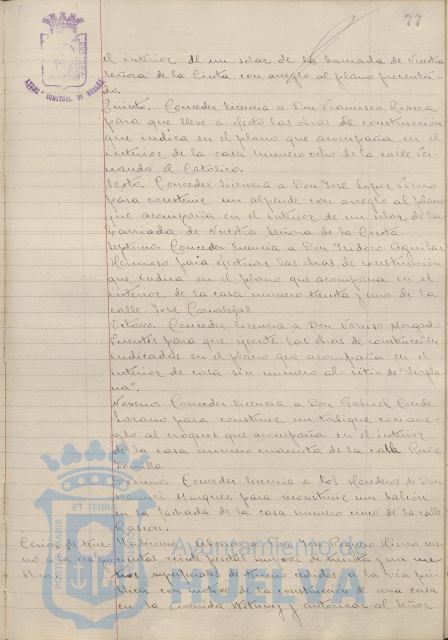 77
AYUNT. CONSTNAL. DE HUELVA
el interior de un solar de la barriada de Nuestra
Señora de la Cinta, con arreglo al plano presenta
do.
Quinto. Conceder licencia a Don Francisco Rivera
para que lleve a efecto las obras de construcción
que indica en el plano que acompaña en el
interior de la casa numero ocho de la calle Fer
nando el Católico.
Sexto. Conceder licencia a Don Jose Lopez
para construir un alpende con arreglo al plano
que acompaña en el interior de un solar de la
Barriada de Nuestra Señora de la Cinta.
Septimo. Conceder licencia a Don Isidoro Aguilar
Hermoso para efectuar las obras de construcción
que indica en el plano que acompaña en el
interior de la casa numero treinta y uno de la
calle Jose Canalejas
Octavo. Conceder licencia a Don Narciso Morgado
Fuentes para que ejecute las obras de construcción
indicadas en el plano que acompaña en el
interior de casa sin numero al sitio de
Noveno. Conceder licencia a Don Gabriel Conde
Lozano para construir un tabique con arre
glo al croquis que acompaña en el interior
de la casa numero cincuenta de la calle Ruiz

Decimo Conceder licencia a los herederos de Don
Manuel Marquez para reconstruir un balcón
en la fachada de la casa numero cinco de la calle
Rascon.
Undecimo Abonar a Don Jose
pesetas importe de treinta y un me
tros superficiales de terreno cedidos a la via pu
blica con motivo de la construcción de una casa
en la avenida y autorizar al Señor
PORTUS MARIS ET TERRAE
Ayuntamiento de
HUELVA